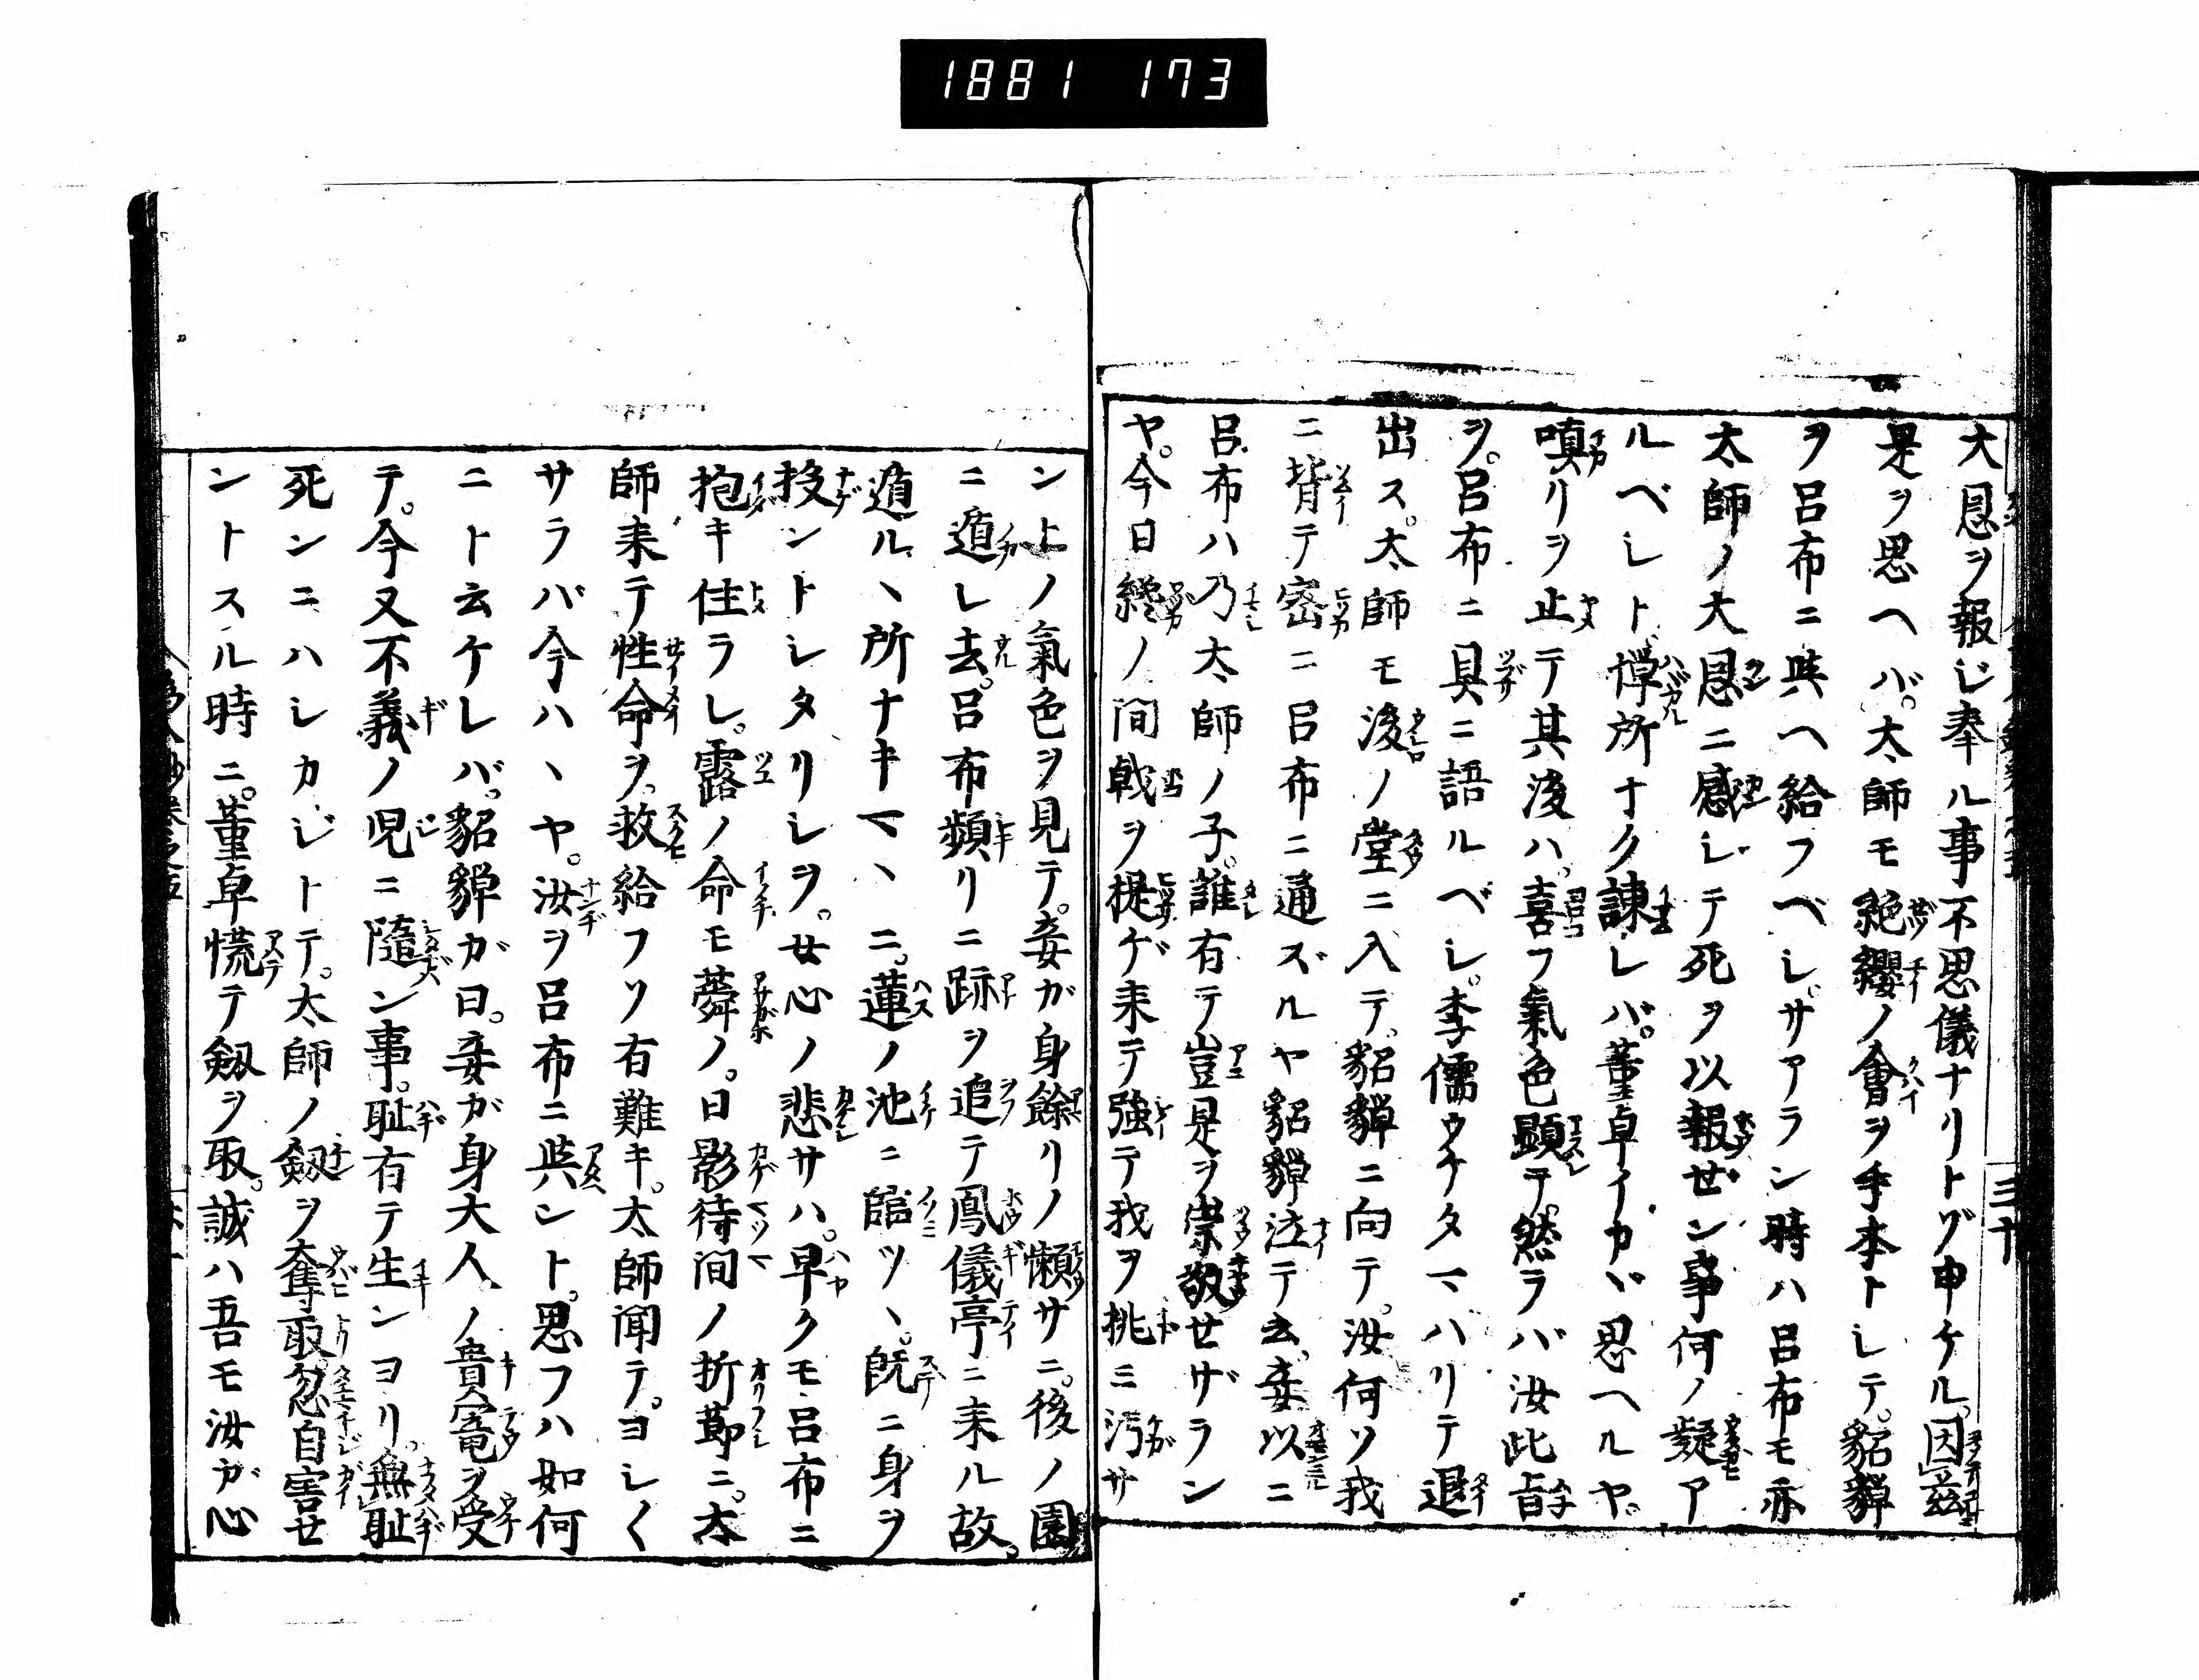 1881 173
大恩ヲ報ジ奉ル事不思儀ナリトゾ申ケル。因茲
是ヲ思ヘバ。太師モ絶纓ノ會ヲ手本トシテ。貂蟬
ヲ呂布ニ與ヘ給フベシ。サアラン時ハ呂布モ亦
太師ノ大恩ニ感ジテ死ヲ以報ぜン事何ノ疑ア
ルベシト憚所ナク諫レバ。董卓イカヾ思ヘルヤ。
嗔リヲ止テ其後ハ。喜フ氣色顕テ。然ラバ汝此旨
ヲ。呂布ニ具ニ語ルベシ。李儒ウケタマハリテ退
出ス。太師モ後ノ堂ニ入テ。貂蟬ニ向テ。汝何ソ我
ニ背テ密ニ呂布ニ通ズルヤ貂蟬泣テ云。妾以ニ
呂布ハ乃太師ノ子。誰有テ豈是ヲ崇敬セザラン
ヤ。今日纔ノ間戟ヲ提ゲ来テ強テ我ヲ挑ミ汚サ
ントノ氣色ヲ見テ。妾ガ身餘リノ懶サニ。後ノ園
ニ遁レ去。呂布頻リニ跡ヲ追テ鳳儀亭ニ来ル故。
遁ルヽ所ナキマヽニ。蓮ノ池ニ臨ツヽ。既ニ身ヲ
投ントシタリシヲ。女心ノ悲サハ。早クモ呂布ニ
抱キ住ラレ。露ノ命モ蕣ノ。日影待間ノ折節ニ。太
師来テ性命ヲ。救給フソ有難キ。太師聞テ。ヨシ〱
サラバ今ハヽヤ。汝ヲ呂布ニ與ント。思フハ如何
ニト云ケレバ。貂蟬ガ曰。妾ガ身大人ノ貴寵ヲ受
テ。今又不義ノ児ニ隨ン事。耻有テ生ンヨリ。無耻
死ンニハシカジトテ。太師ノ劔ヲ奪取。忽自害せ
ントスル時ニ。董卓慌テ劔ヲ取。誠ハ吾モ汝ガ心